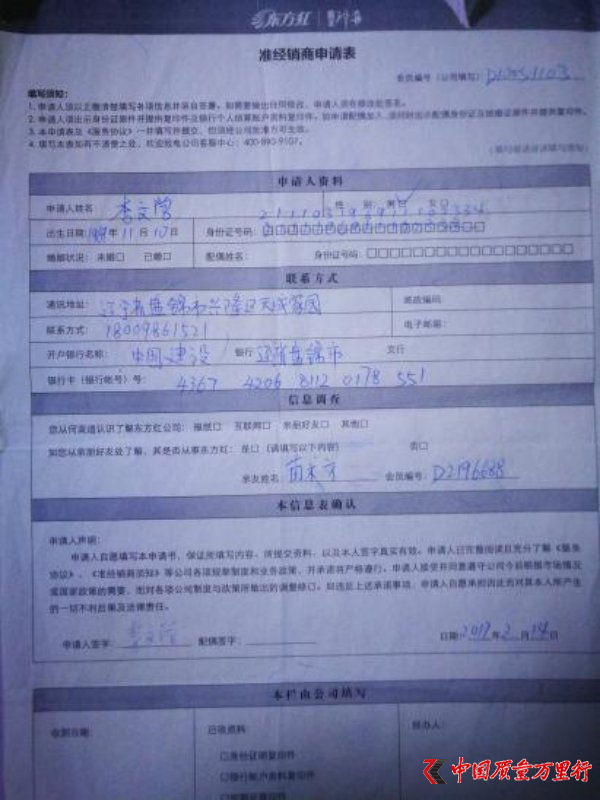 东方红
准经销商申请表
会员编号（公司填写）：
填写须知：
1、申请人须以正楷清楚填写各项信息并亲自签署。如需要做出任何修改，申请人须在修改处签名。
3、本申请表及《服务协议》一并填写并提交，但须经公司批准方可生效。
4、填写本表如有不清楚之处，欢迎致电公司客服中心：400-890-9107。
申请人资料
申请人姓名 李文
性 别：男 女
出生日期 年11月10日 身份证号码：
婚姻状况：未婚□ 已婚□ 配偶姓名： 身份证号码：
联系方式
通讯地址：辽宁省盘锦市兴隆区天成家园 邮政编码
联系方式：18009861521 电子邮箱：
开户银行名称：中国建设 银行 辽 盘锦市 支行
银行卡（银行帐号）号：4367 4206 8112 0178 551
信息调查
您从何渠道认识了解东方红公司：报纸□ 互联网□ 亲朋好友□ 其他□
如您从亲朋好友处了解，其是否从事东方红：是□（请填写以下内容） 否□
亲友姓名： 苗 会员编号：D2196688
本信息表确认
申请人声明：
申请人自愿填写本申请书，保证所填写内容、所提交资料，以及本人签字真实有效。申请人已完整阅读且充分了解《服务
协议》、《准经销商须知》等公司各项规章制度和业务政策，并承诺将严格遵行。申请人接受并同意遵守公司今后根据市场情况
或国家政策的需要，而对各项公司制度与政策所做出的调整修订。如违反上述承诺事项，申请人自愿承担因此而对其本人所产生
的一切不利后果及法律责任。
申请人签字： 配偶签字： 日期：2017年2月14日
本栏由公司填写
收到日期： 已收资料： 经办人：
□身份证明复印件
□银行帐户资料复印件
中国质量万里行